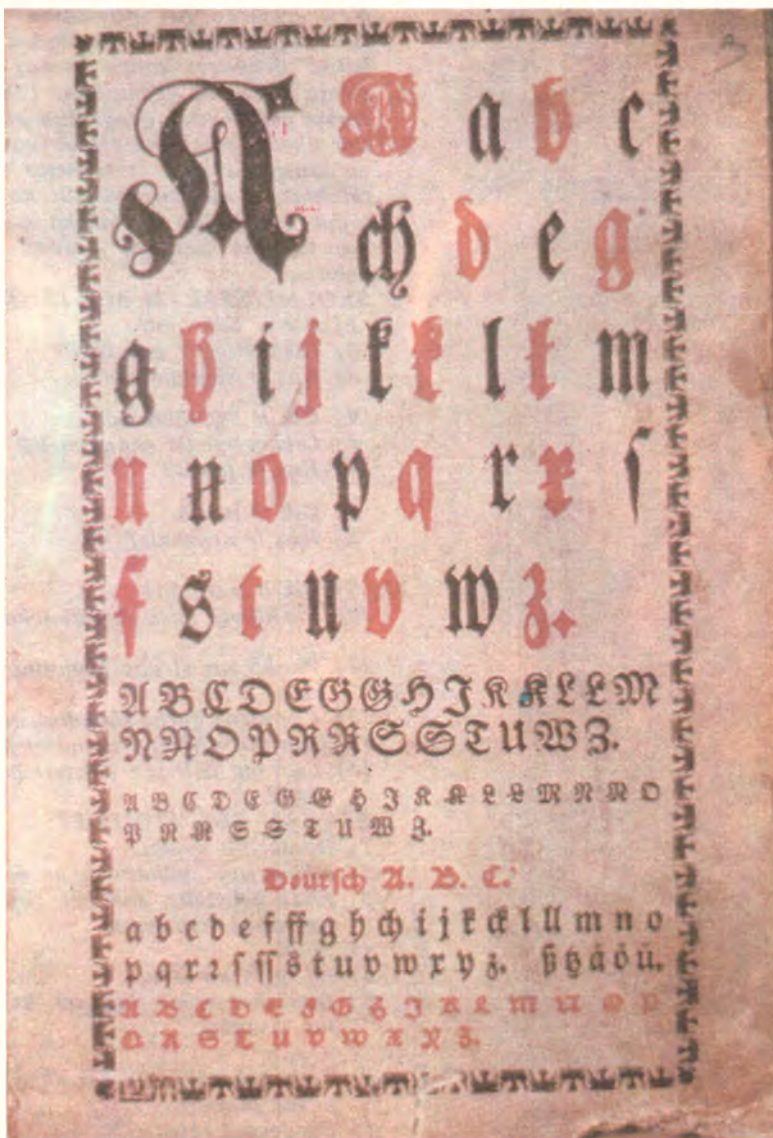 A A a b c
ch d e g
ꞡ h i j k ꞣ l ł m
n ꞥ o p q r ꞧ ſ
ẜ s t u v w z.
A B C D E G Ꞡ H J K Ꞣ L Ł M
N Ꞥ O P R Ꞧ S Ꞩ T U W Z.
A B C D E G Ꞡ H J K Ꞣ L Ł M N Ꞥ O
P R Ꞧ S Ꞩ T U W Z.
Deutsch A. B. C.
a b c d e f ff g h ch i j k ck l ll m n o
p q r ꝛ ſ ſſ s t u v w x y z. ß tz ä ö ü.
A B C D E F G H J K L M N O P
Q R S T U V W X Y Z.